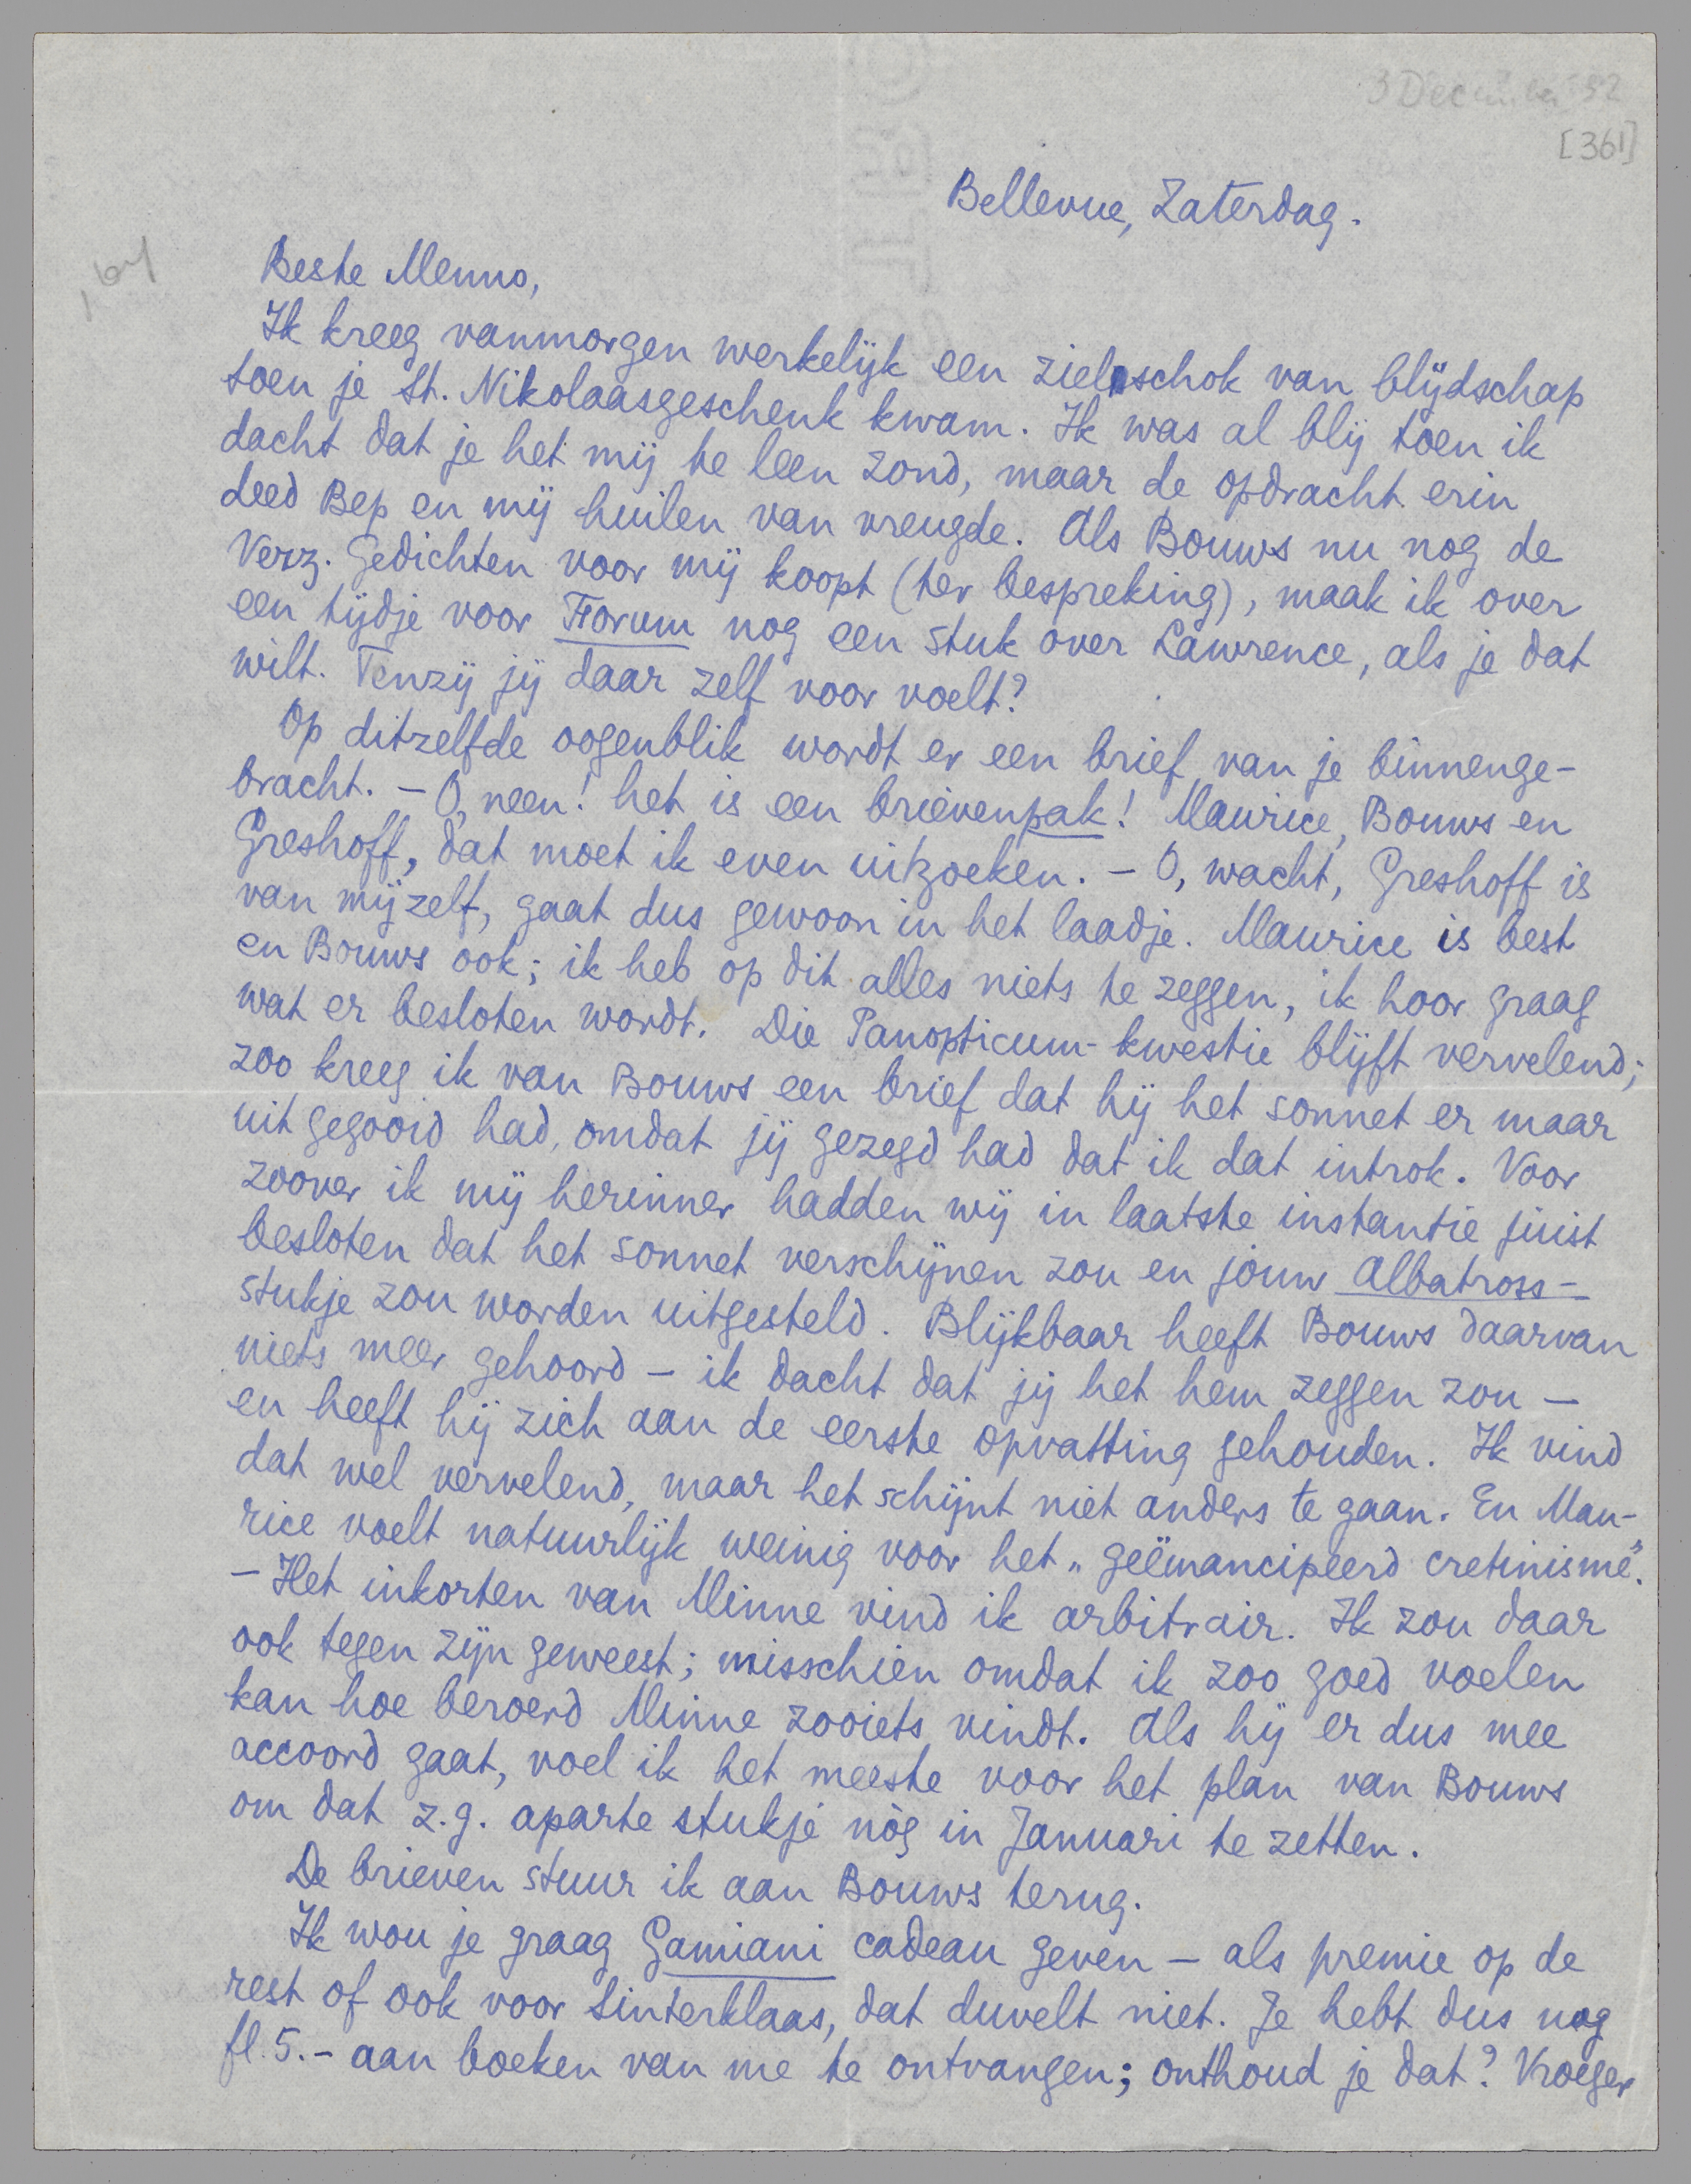 3 December '32
[361]
Bellevue, Zaterdag.
Beste Menno,
Ik kreeg vanmorgen werkelijk een zielsschok van blijdschap
toen je St. Nikolaasgeschenk kwam. Ik was al blij toen ik
dacht dat je het mij te leen zond, maar de opdracht erin
deed Bep en mij huilen van vreugde. Als Bouws nu nog de
Verz. Gedichten voor mij koopt (ter bespreking), maak ik over
een tijdje voor Forum nog een stuk over Lawrence, als je dat
wilt. Tenzij jij daar zelf voor voelt?
Op ditzelfde oogenblik wordt er een brief van je binnenge-
bracht. – O, neen! het is een brievenpak! Maurice, Bouws en
Greshoff, dat moet ik even uitzoeken. – O, wacht, Greshoff is
van mijzelf, gaat dus gewoon in het laadje. Maurice is best
en Bouws ook; ik heb op dit alles niets te zeggen, ik hoor graag
wat er besloten wordt. Die Panopticum-kwestie blijft vervelend;
zoo kreeg ik van Bouws een brief dat hij het sonnet er maar
uit gegooid had, omdat jij gezegd had dat ik dat introk. Voor
zoover ik mij herinner hadden wij in laatste instantie juist
besloten dat het sonnet verschijnen zou en jouw Albatross-
stukje zou worden uitgesteld. Blijkbaar heeft Bouws daarvan
niets meer gehoord – ik dacht dat jij het hem zeggen zou –
en heeft hij zich aan de eerste opvatting gehouden. Ik vind
dat wel vervelend, maar het schijnt niet anders te gaan. En Mau-
rice voelt natuurlijk weinig voor het „geëmancipeerd cretinisme”.
– Het inkorten van Minne vind ik arbitrair. Ik zou daar
ook tegen zijn geweest; misschien omdat ik zoo goed voelen
kan hoe beroerd Minne zooiets vindt. Als hij er dus mee
accoord gaat, voel ik het meeste voor het plan van Bouws
om dat z.g. aparte stukje nòg in Januari te zetten.
De brieven stuur ik aan Bouws terug.
Ik wou je graag Gamiani cadeau geven – als premie op de
rest of ook voor Sinterklaas, dat duvelt niet. Je hebt dus nog
fl. 5.– aan boeken van me te ontvangen; onthoud je dat? Vroeger